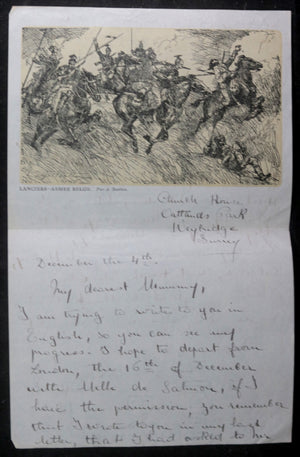 LANCIERS—ARMÉE BELGE.
Church House
Oatlands Park
Weybridge
Surrey
December the 4th.
My dearest Mummy,
I am trying to write to you in
English, so you can see my
progress. I hope to depart from
London, the 16th of December
with Melle de Salmon, if I
have the permission, you remember
that I wrote to you in my last
letter, that I had asked to